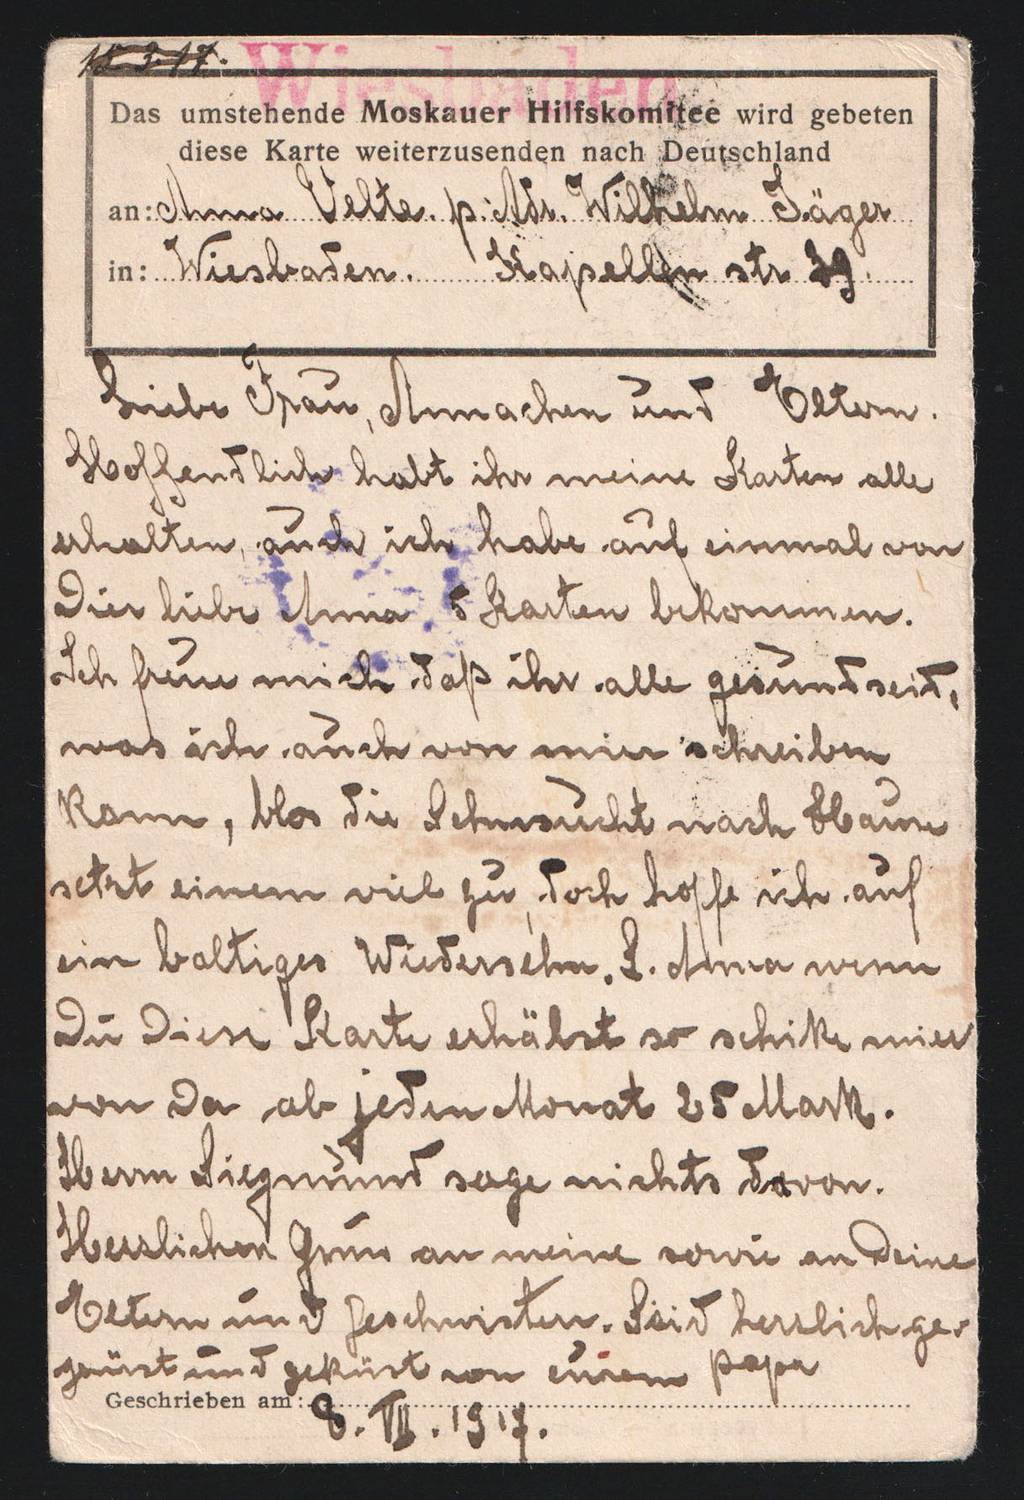 15.3.17.
Wiesbaden
Das umstehende Moskauer Hilfskomitee wird gebeten
diese Karte weiterzusenden nach Deutschland
an: Anna Velte. p. Adr. Wilhelm Jäger
in: Wiesbaden. Kapellen str 39.
Liebe Frau, Annachen und Eltern.
Hoffendlich habt ihr meine Karten alle
erhalten, auch ich habe auf einmal von
Dier liebe Anna 5 Karten bekommen.
Ich freue mich daß ihr alle gesund seid,
was ich auch von mier schreiben
kann, blos die Sehnsucht nach Hause
setzt einem viel zu, doch hoffe ich auf
ein baltiges Wiedersehn. L. Anna wenn
Du Diese Karte erhälst so schike mier
von Da ab jeden Monat 25 Mark.
Herrn Siegmund sage nichts davon.
Herzlichen Grus an meine sowie an Deine
Eltern und Geschwistern. Seid herzlich ge-
grüst und geküst von eurem papa
Geschrieben am: 8. VII. 1917.